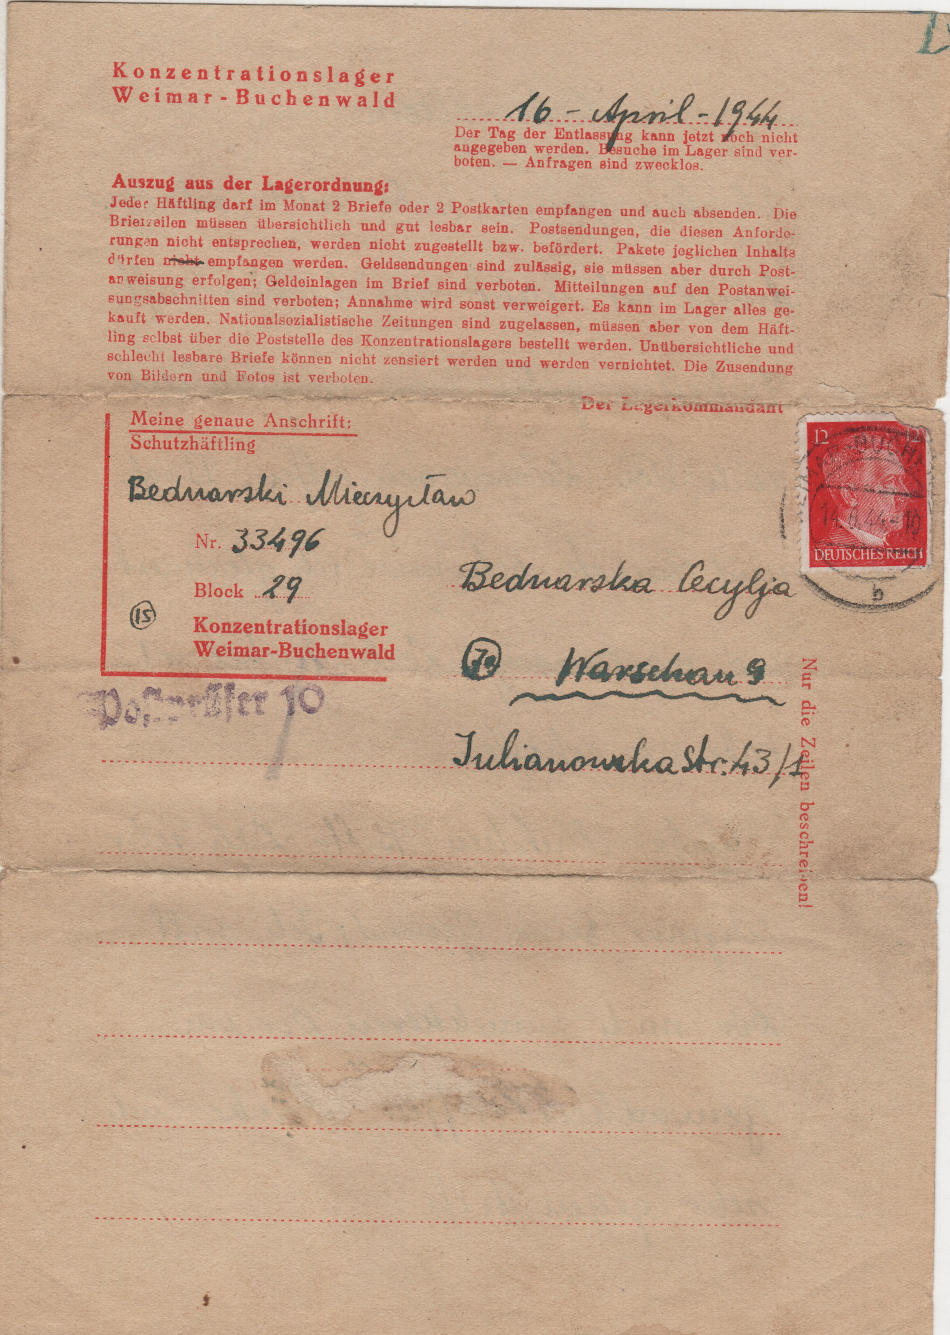 Konzentrationslager
Weimar-Buchenwald
16 - April - 1944
Der Tag der Entlassung kann jetzt noch nicht
angegeben werden. Besuche im Lager sind ver-
boten. — Anfragen sind zwecklos.
Auszug aus der Lagerordnung:
Jeder Häftling darf im Monat 2 Briefe oder 2 Postkarten empfangen und auch absenden. Die
Briefzeilen müssen übersichtlich und gut lesbar sein. Postsendungen, die diesen Anforde-
rungen nicht entsprechen, werden nicht zugestellt bzw. befördert. Pakete jeglichen Inhalts
dürfen nicht empfangen werden. Geldsendungen sind zulässig, sie müssen aber durch Post-
anweisung erfolgen; Geldeinlagen im Brief sind verboten. Mitteilungen auf den Postanwei-
sungsabschnitten sind verboten; Annahme wird sonst verweigert. Es kann im Lager alles ge-
kauft werden. Nationalsozialistische Zeitungen sind zugelassen, müssen aber von dem Häft-
ling selbst über die Poststelle des Konzentrationslagers bestellt werden. Unübersichtliche und
schlecht lesbare Briefe können nicht zensiert werden und werden vernichtet. Die Zusendung
von Bildern und Fotos ist verboten.
Der Lagerkommandant
Meine genaue Anschrift:
Schutzhäftling
Bednarski Mieczysław
Nr. 33496
Block 29
15
Konzentrationslager
Weimar-Buchenwald
12 12
DEUTSCHES REICH
b
Bednarska Cecylja
Warschau 9
Julianowska Str. 43/1
10
Nur die Zeilen beschreiben!